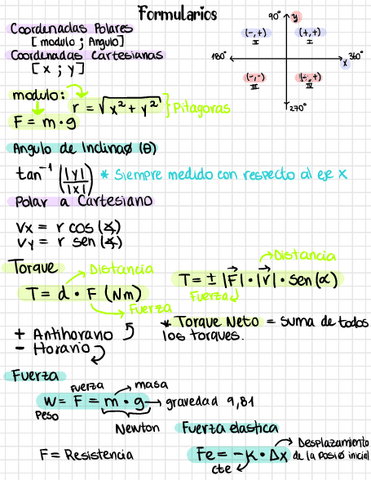 Formularios
Coordenadas Polares
[modulo ; Angulo]
Coordenadas Cartesianas
[x ; y]
90° y
(-,+) (+,+)
I I
180° 360°
x
(-,-) (+,+)
270°
modulo:
r = √x² + y² } Pitagoras
F = m · g
Angulo de Inclinaσ (θ)
tan⁻¹ (|y|/|x|) * Siempre medido con respecto al eje x
Polar a Cartesiano
Vx = r cos (∡)
Vy = r sen (∡)
Torque
Distancia
T = d · F (Nm)
Fuerza
Distancia
T = ± |F| · |r| · sen(α)
Fuerza
+ Antihorario
- Horario
* Torque Neto = suma de todos
los torques.
Fuerza
Fuerza masa
W = F = m · g → gravedad 9,81
Peso
Newton
F = Resistencia
Fuerza elastica
Fe = -k · Δx
cte
Desplazamiento
de la posiσ inicial